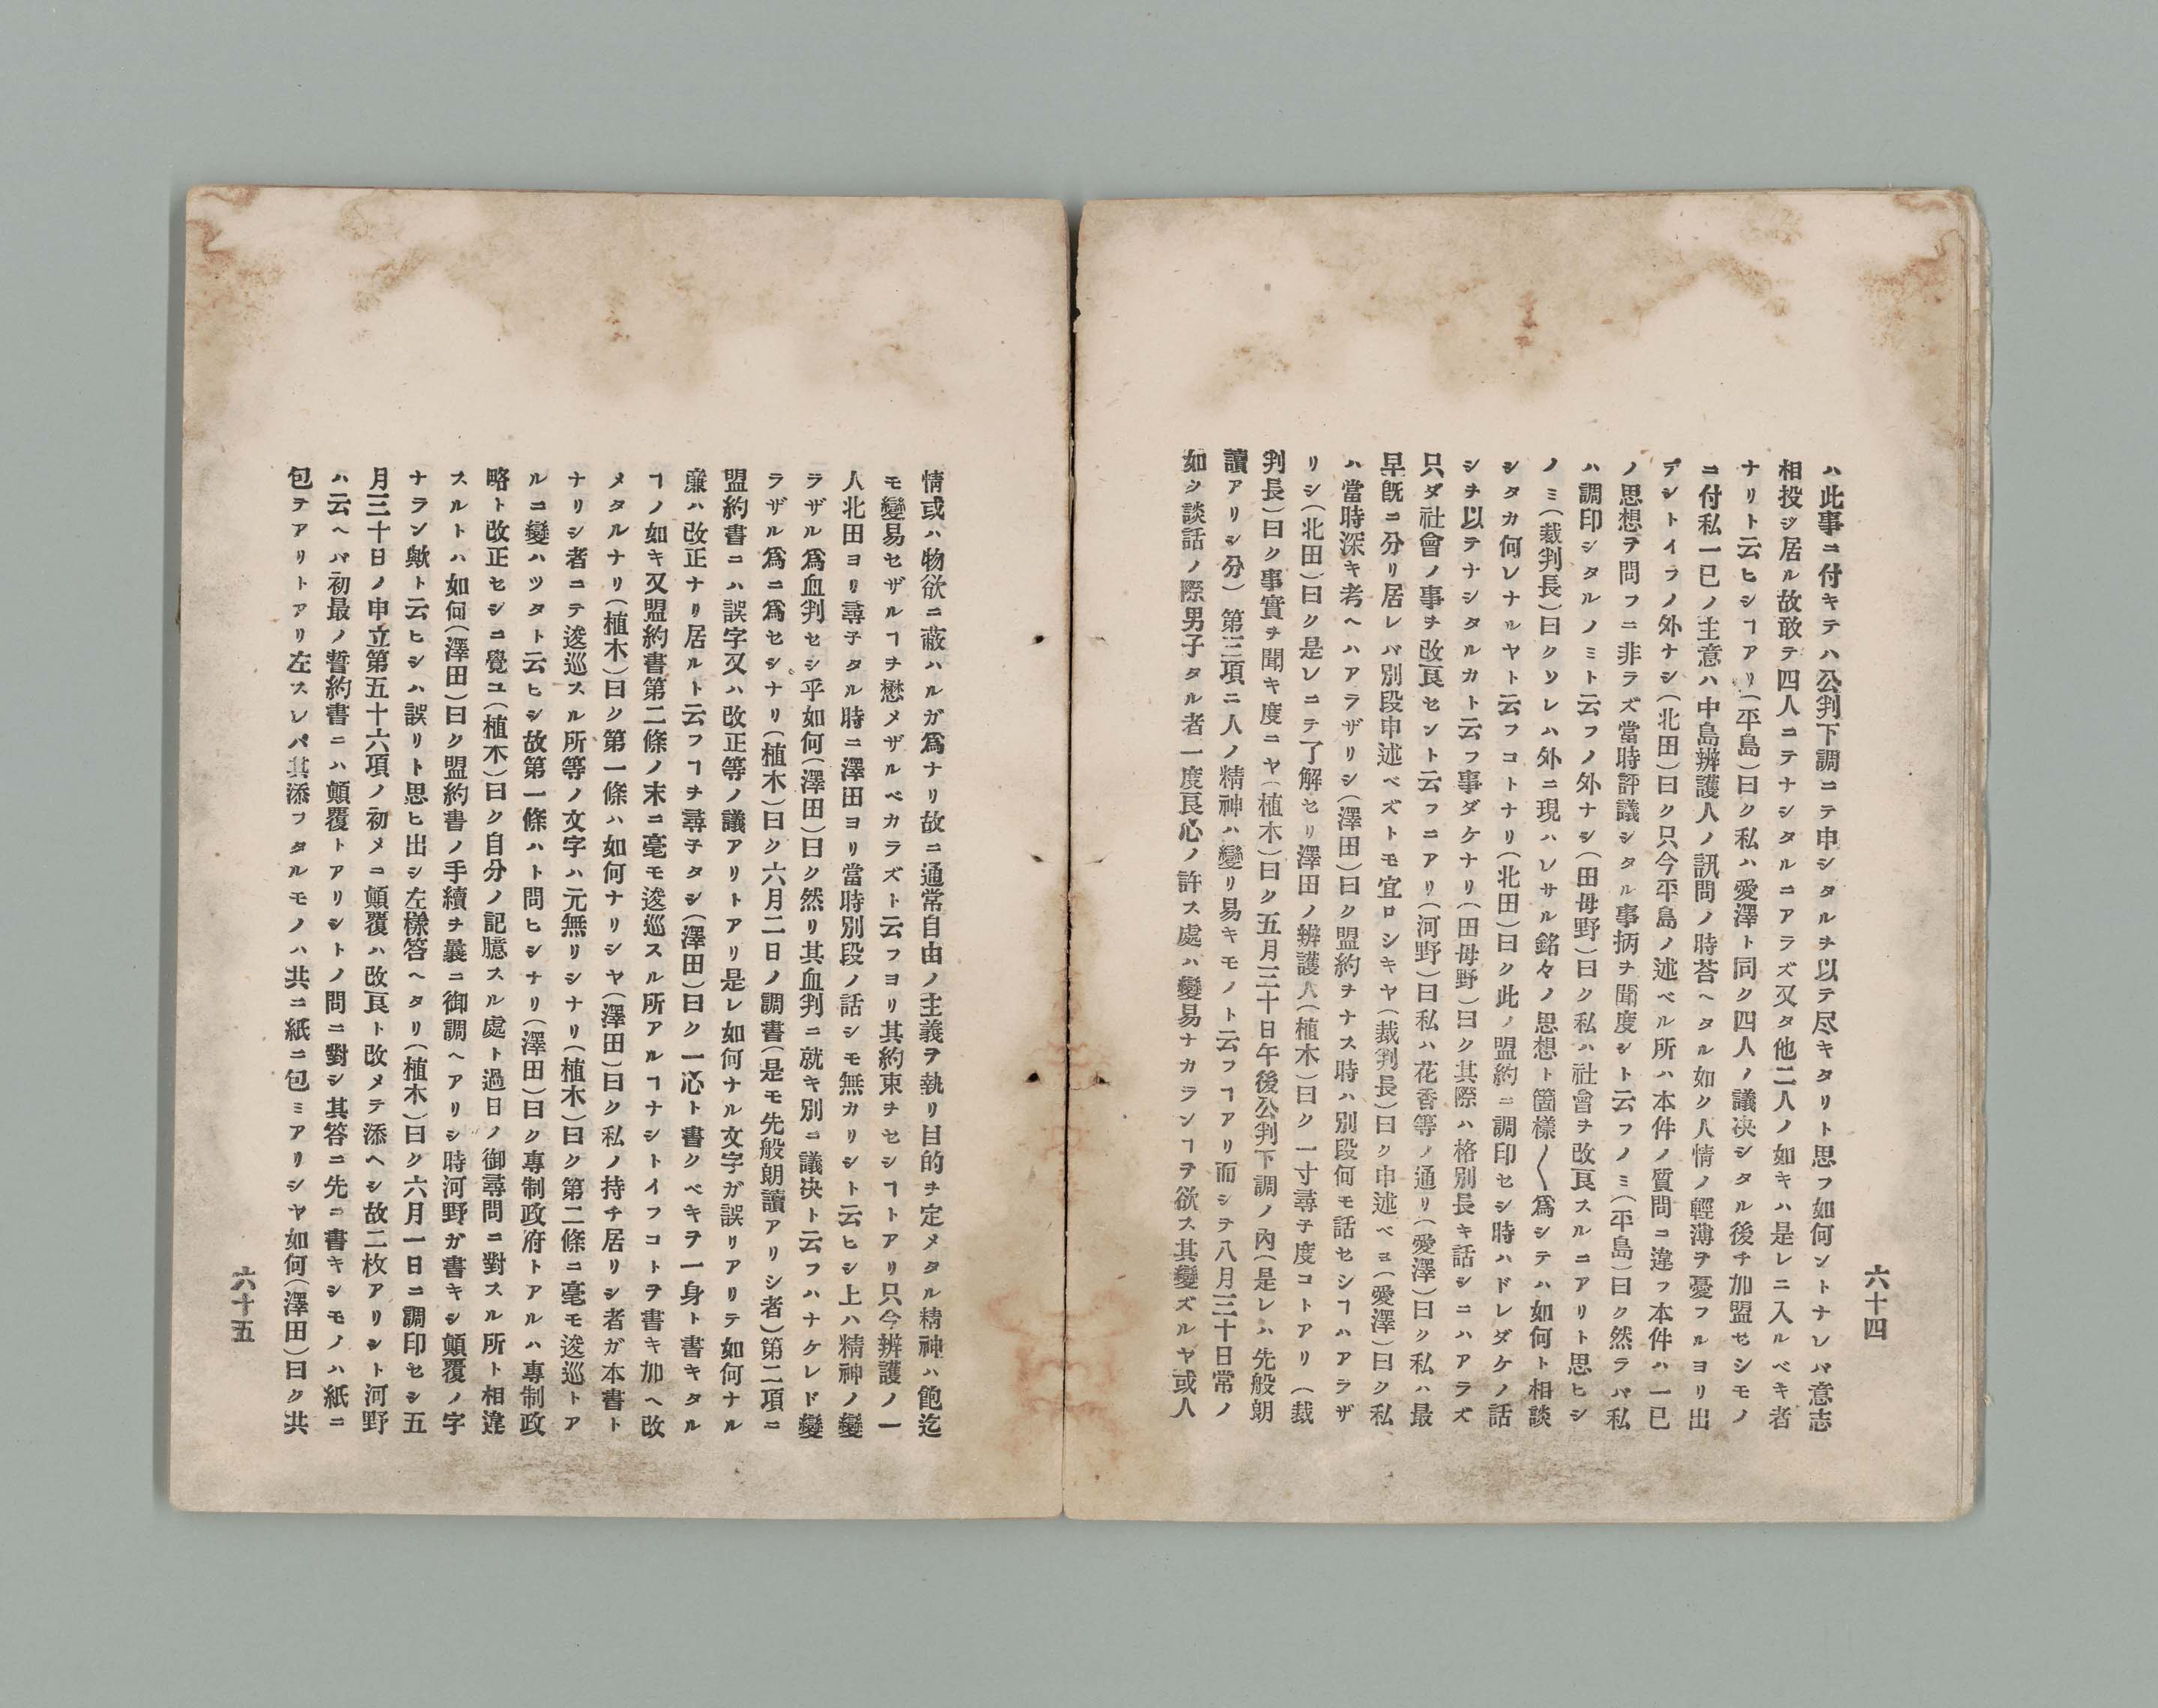 六十四
ハ此事ニ付キテハ公判下調ニテ申シタルヲ以テ尽キタリト思フ如何ントナレバ意志
相投ジ居ル故敢テ四人ニテナシタルニアラズ又タ他二人ノ如キハ是レニ入ルベキ者
ナリト云ヒシヿアリ(平島)曰ク私ハ愛澤ト同ク四人ノ議决シタル後チ加盟セシモノ
ニ付私一已ノ主意ハ中島辨護人ノ訊問ノ時荅ヘタル如ク人情ノ輕薄ヲ憂フルヨリ出
デシトイフノ外ナシ(北田)曰ク只今平島ノ述ベル所ハ本件ノ質問ニ違フ本件ハ一已
ノ思想ヲ問フニ非ラズ當時評議シタル事柄ヲ聞度シト云フノミ(平島)曰ク然ラバ私
ハ調印シタルノミト云フノ外ナシ(田母野)曰ク私ハ社會ヲ改良スルニアリト思ヒシ
ノミ(裁判長)曰クソレハ外ニ現ハレサル銘々ノ思想ト箇樣〳〵爲シテハ如何ト相談
シタカ何レナルヤト云フコトナリ(北田)曰ク此ノ盟約ニ調印セシ時ハドレダケノ話
シヲ以テナシタルカト云フ事ダケナリ(田母野)曰ク其際ハ格別長キ話シニハアラズ
只ダ社會ノ事ヲ改良セント云フニアリ(河野)曰私ハ花香等ノ通リ(愛澤)曰ク私ハ最
早既ニ分リ居レバ別段申述ベズトモ宜ロシキヤ(裁判長)曰ク申述ベヨ(愛澤)曰ク私
ハ當時深キ考ヘハアラザリシ(澤田)曰ク盟約ヲナス時ハ別段何モ話セシヿハアラザ
リシ(北田)曰ク是レニテ了解セリ澤田ノ辨護人(植木)曰ク一寸尋子度コトアリ(裁
判長)曰ク事實ヲ聞キ度ニヤ(植木)曰ク五月三十日午後公判下調ノ內(是レハ先般朗
讀アリシ分)第三項ニ人ノ精神ハ變リ易キモノト云フヿアリ而シテ八月三十日常ノ
如ク談話ノ際男子タル者一度良心ノ許ス處ハ變易ナカランヿヲ欲ス其變ズルヤ或人
情或ハ物欲ニ蔽ハルガ爲ナリ故ニ通常自由ノ主義ヲ執リ目的ヲ定メタル精神ハ飽迄
モ變易セザルヿヲ懋メザルベカラズト云フヨリ其約束ヲセシヿトアリ只今辨護ノ一
人北田ヨリ尋子タル時ニ澤田ヨリ當時別段ノ話シモ無カリシト云ヒシ上ハ精神ノ變
ラザル爲血判セシ乎如何(澤田)曰ク然リ其血判ニ就キ別ニ議决ト云フハナケレド變
ラザル爲ニ爲セシナリ(植木)曰ク六月二日ノ調書(是モ先般朗讀アリシ者)第二項ニ
盟約書ニハ誤字又ハ改正等ノ議アリトアリ是レ如何ナル文字ガ誤リアリテ如何ナル
廉ハ改正ナリ居ルト云フヿヲ尋子タシ(澤田)曰ク一心ト書クベキヲ一身ト書キタル
ヿノ如キ又盟約書第二條ノ末ニ毫モ逡巡スル所アルヿナシトイフコトヲ書キ加ヘ改
メタルナリ(植木)曰ク第一條ハ如何ナリシヤ(澤田)曰ク私ノ持チ居リシ者ガ本書ト
ナリシ者ニテ逡巡スル所等ノ文字ハ元無リシナリ(植木)曰ク第二條ニ毫モ逡巡トア
ルニ變ハツタト云ヒシ故第一條ハト問ヒシナリ(澤田)曰ク專制政府トアルハ專制政
略ト改正セシニ覺ユ(植木)曰ク自分ノ記臆スル處ト過日ノ御尋問ニ對スル所ト相違
スルトハ如何(澤田)曰ク盟約書ノ手續ヲ曩ニ御調ヘアリシ時河野ガ書キシ顛覆ノ字
ナラン歟ト云ヒシハ誤リト思ヒ出シ左樣答ヘタリ(植木)曰ク六月一日ニ調印セシ五
月三十日ノ申立第五十六項ノ初メニ顛覆ハ改良ト改メテ添ヘシ故二枚アリシト河野
ハ云ヘバ初最ノ誓約書ニハ顛覆トアリシトノ問ニ對シ其答ニ先ニ書キシモノハ紙ニ
包テアリトアリ左スレバ其添フタルモノハ共ニ紙ニ包ミアリシヤ如何(澤田)曰ク共
六十五